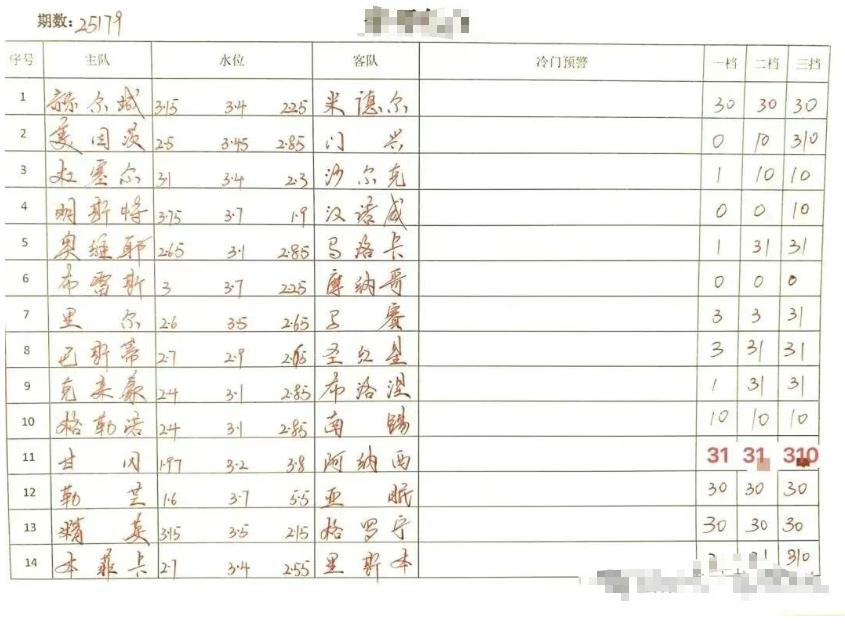 期数: 25179
序号 主队 水位 客队 冷门预警 一档 二档 三挡
1 赫尔城 3.15 3.4 2.25 米德尔 30 30 30
2 美因茨 2.5 3.45 2.85 门兴 0 10 310
3 杜塞尔 3.1 3.4 2.3 沙尔克 1 10 10
4 明斯特 3.75 3.7 1.9 汉诺威 0 0 10
5 奥维耶 2.65 3.1 2.85 马洛卡 1 31 31
6 布雷斯 3 3.7 2.25 摩纳哥 0 0 0
7 里尔 2.6 3.5 2.65 马赛 3 3 31
8 巴斯蒂 2.7 2.9 2.65 圣红星 3 31 31
9 克莱蒙 2.4 3.1 2.85 布洛涅 1 31 31
10 格勒诺 2.4 3.1 2.85 南锡 10 10 10
11 甘冈 1.97 3.2 3.8 阿纳西 31 31 310
12 勒芒 1.6 3.7 5.5 亚眠 30 30 30
13 精英 3.15 3.5 2.15 格罗宁 30 30 30
14 本菲卡 2.7 3.4 2.55 里斯本 310